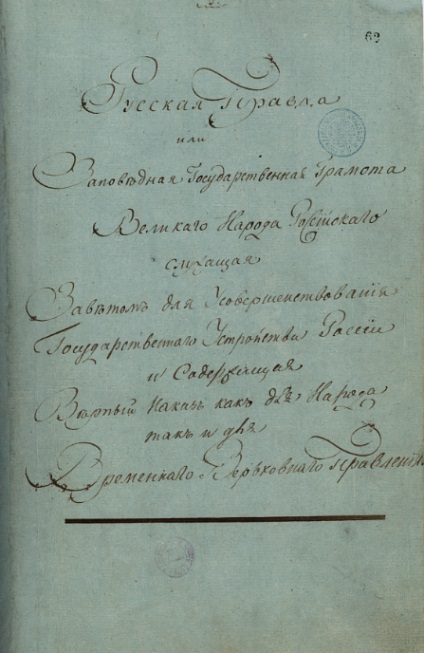 62
Русская Правда
или
Заповѣдная Государственная Грамота
Великаго Народа Россійскаго
служащая
Завѣтомъ для Усовершенствованія
Государственнаго Устройства Россіи
и Содержащая
Вѣрный Наказъ какъ для Народа
такъ и для
Временнаго Верьховнаго Правленія